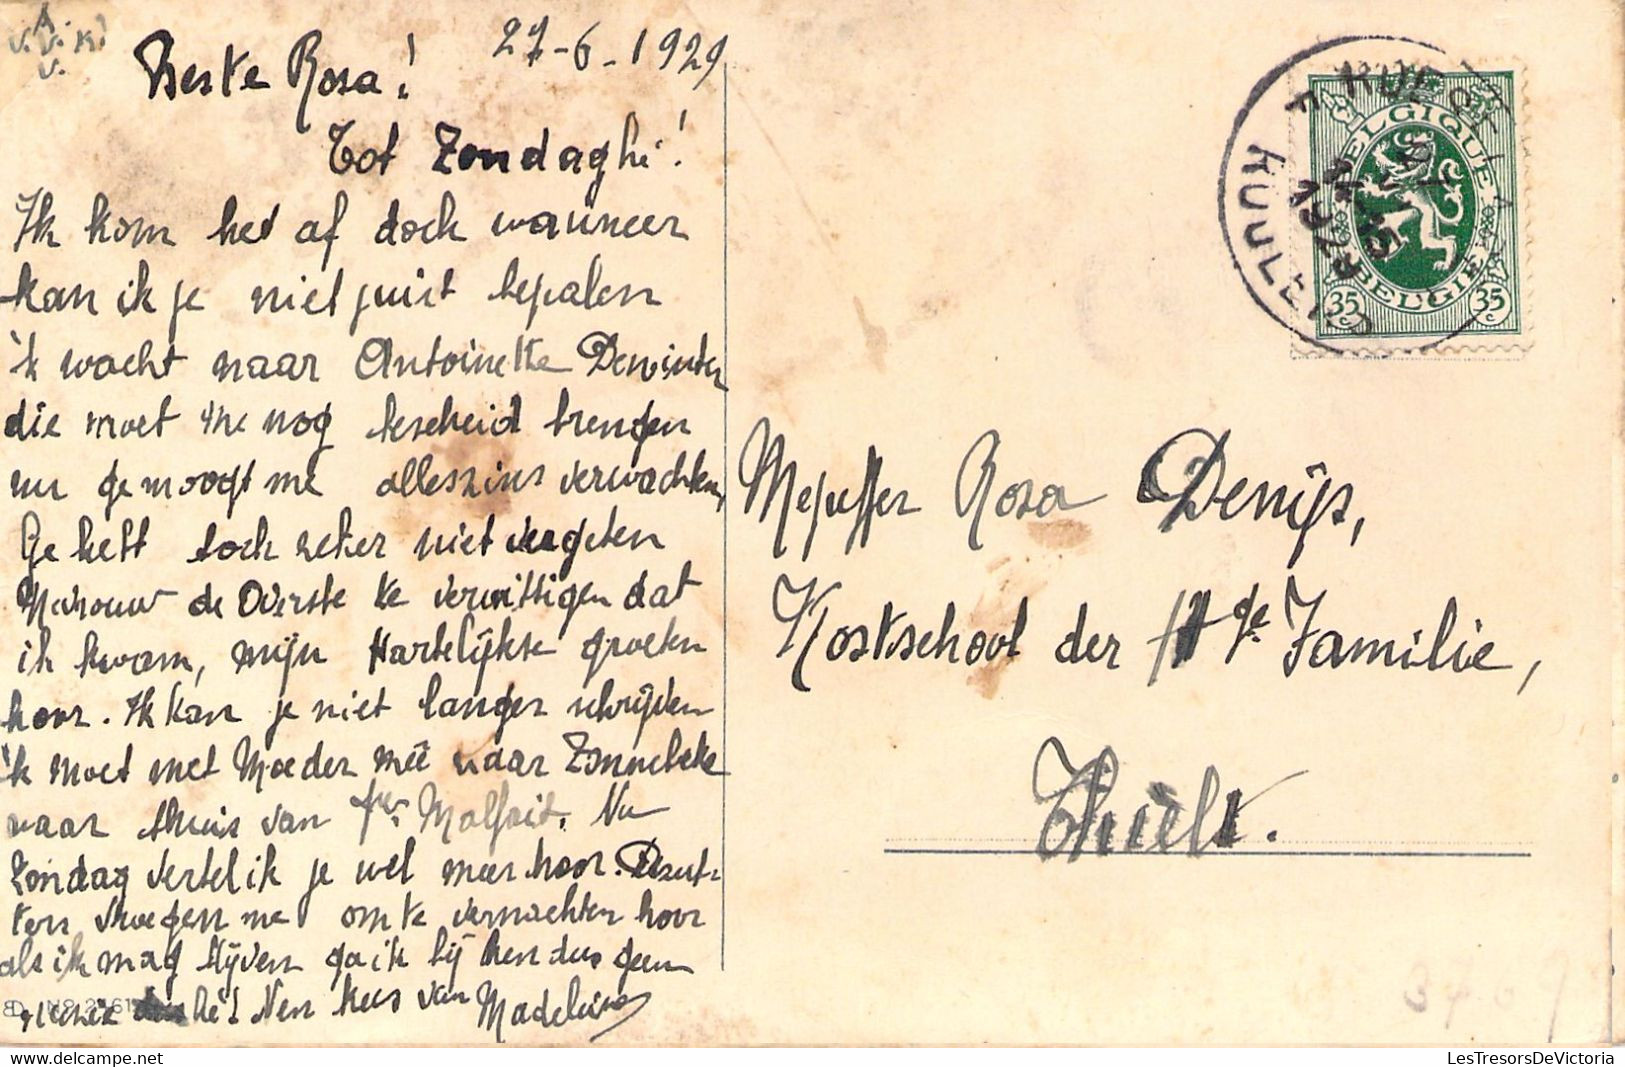 A
V.V.K.
V.
27-6-1929
Beste Rosa!
Tot Zondaghé!
Ik kom hed af doch wanneer
kan ik je niet juist bepalen
'k wacht naar Antoinette Dewinter
die moet me nog bescheid brengen
nu ge moogt me alleszins verwachten,
Ge hebt toch zeker niet vergeten
Mevrouw de Overste te verwittigen dat
ik kwam, mijn Hartelijkste groeten
hoor. Ik kan je niet langer schrijven
'k moet met Moeder meê naar Zonnebeke
naar thuis van Malfait. Nu
Zondag vertel ik je wel meer hoor.
vroegen me om te vernachten hoor
als ik mag blijven ga ik bij hen dus geen
hé! Nen kus van Madeleine
Mejuffer Rosa Denijs,
Kostschool der H ge Familie,
Thielt.
BELGIQUE
BELGIE
35 c
35 c
1929
RUULE
LesTresorsDeVictoria